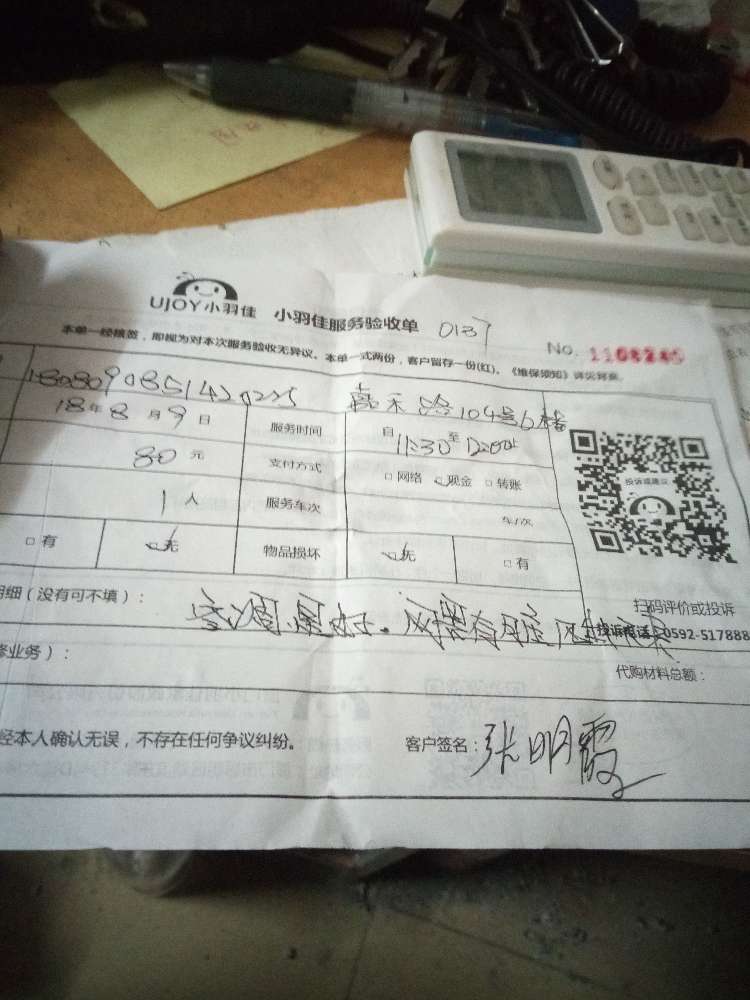 UJOY小羽佳 小羽佳服务验收单 0137
No. 1108245
本单一经核签，即视为对本次服务验收无异议。本单一式两份，客户留存一份(红)。《维保须知》详见背面。
嘉禾路104号6楼
18年8月9日 服务时间 自11:30至12:00
80元 支付方式 □网络 现金 □转账
1人 服务车次 车/次
□有 无 物品损坏 无 □有
投诉或建议
扫码评价或投诉
明细（没有可不填）：
投诉电话：0592-517888
修业务）： 代购材料总额：
经本人确认无误，不存在任何争议纠纷。 客户签名：张明霞